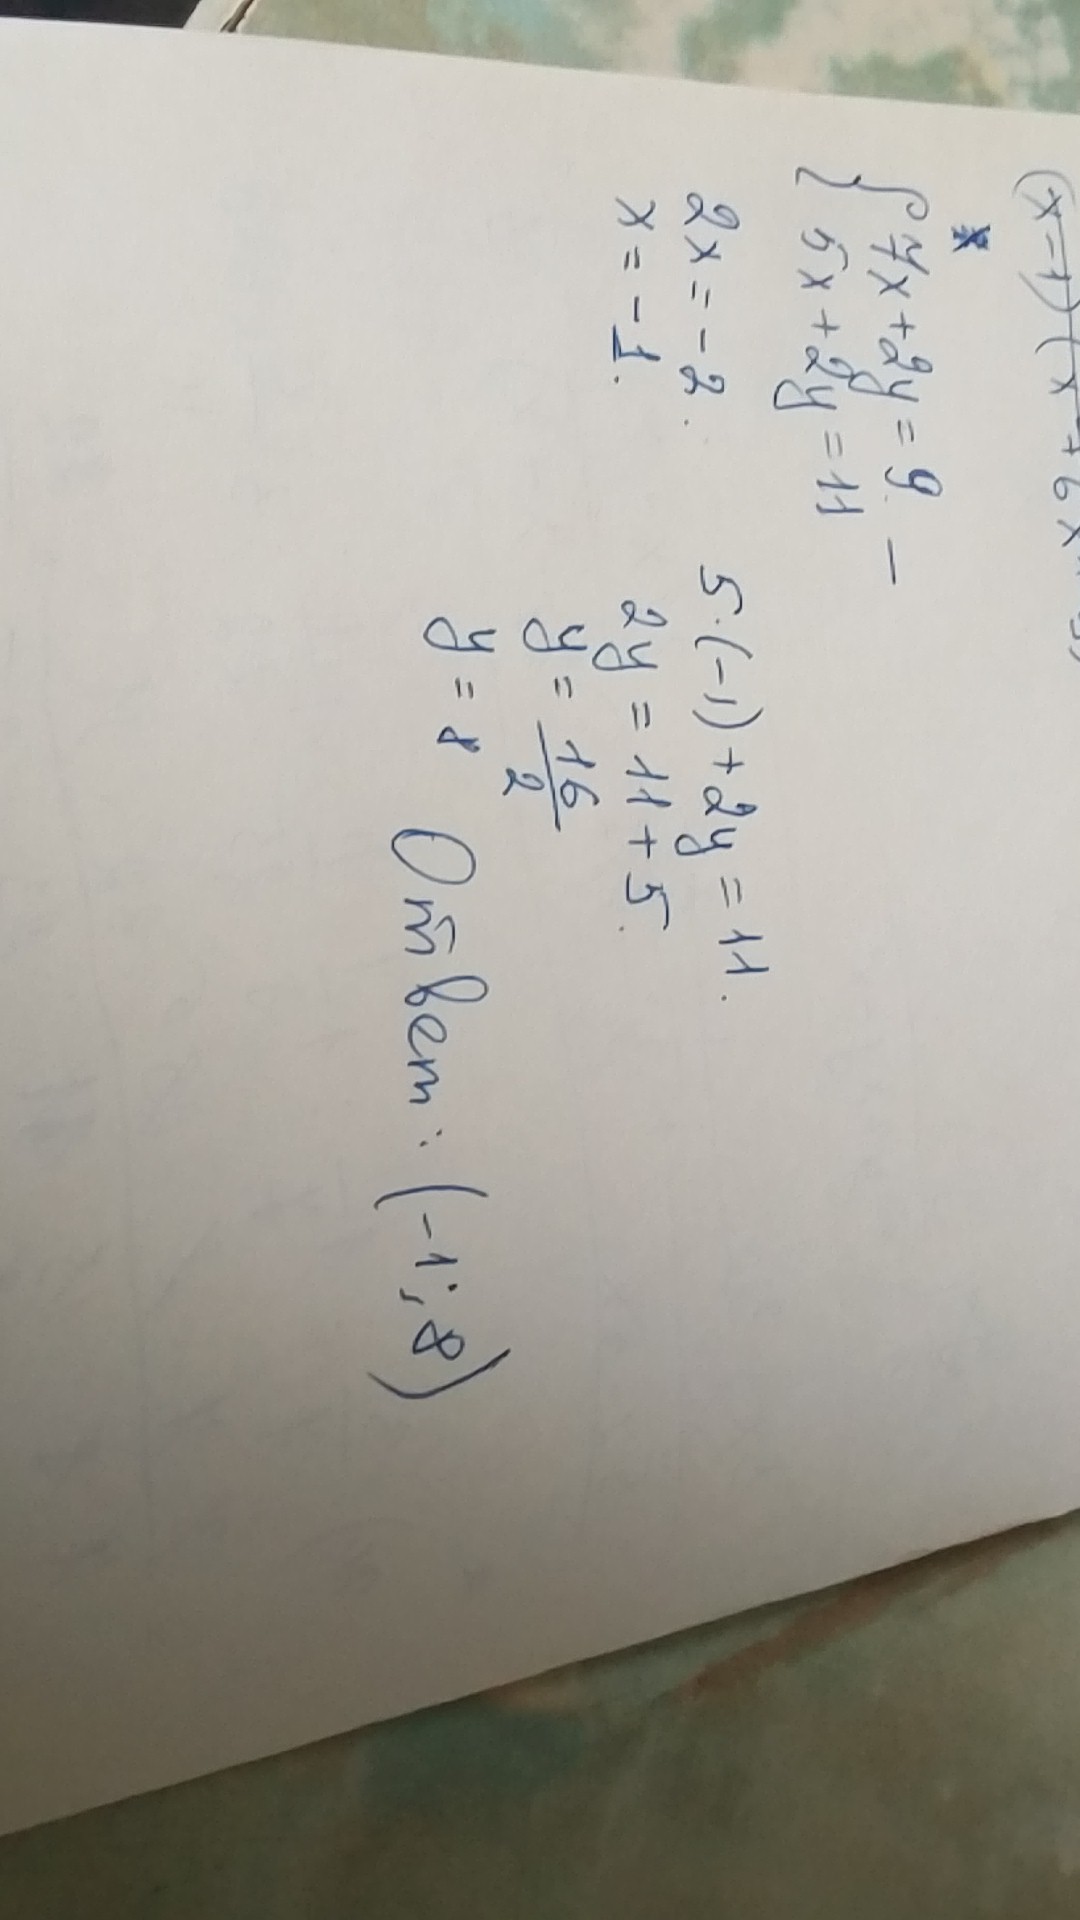 { 7x + 2y = 9 −
5x + 2y = 11
2x = -2.
x = -1.
5·(-1) + 2y = 11.
2y = 11 + 5.
y = 16/2
y = 8
Ответ: (-1; 8)